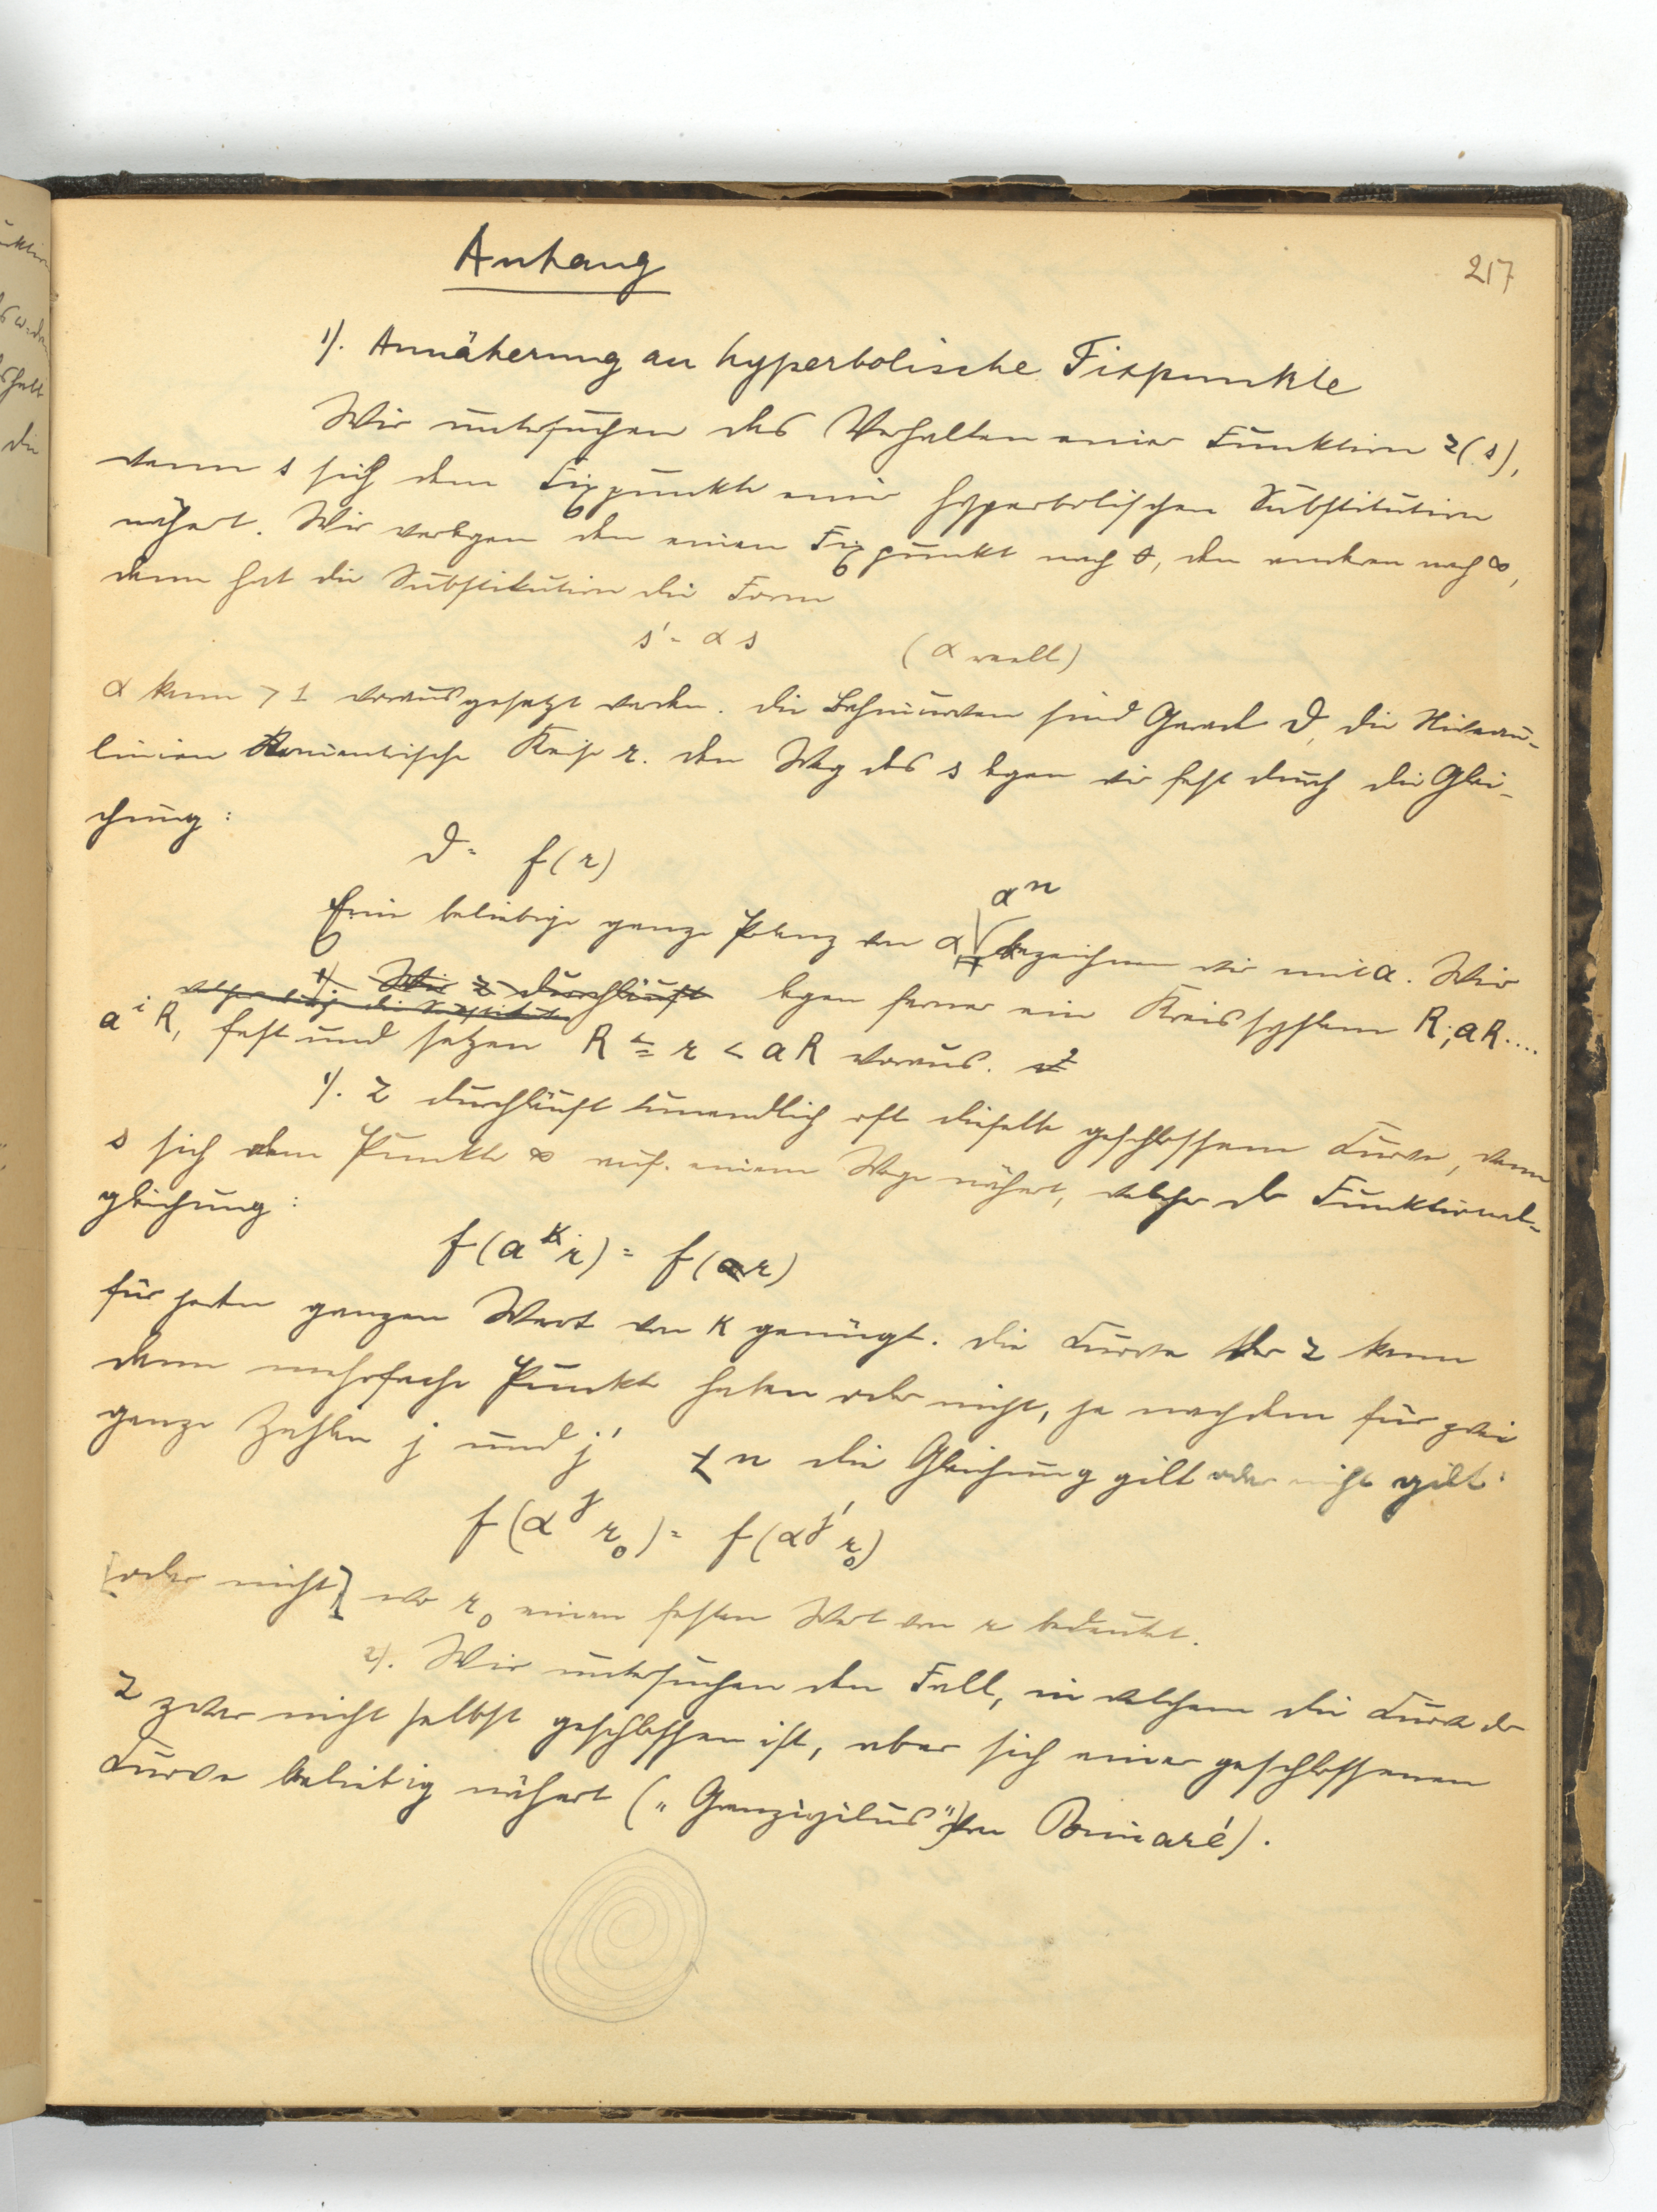 Anhang
217
1). Annäherung an hyperbolische Fixpunkte
Wir untersuchen das Verhalten einer Funktion z(s),
wenn s sich dem Fixpunkte einer hyperbolischen Substitution
nähert. Wir verlegen den einen Fixpunkt nach 0, den anderen nach ∞,
dann hat die Substitution die Form
s' = α s (α reell)
α kann > 1 vorausgesetzt werden. Die Bahncurven sind Gerade ϑ, die Niveau-
linien konzentrische Kreise r. Den Weg des s legen wir fest durch die Glei-
chung:
ϑ = f(r)
α^n
Eine beliebige ganze Potenz von α bezeichnen wir mit a. Wir
1) Wir z durchläuft legen ferner ein Kreissystem R, aR....
a^i R, fest und setzen R ≦ r < aR voraus.
1). z durchläuft unendlich oft dieselbe geschlossene Curve, wenn
s sich dem Punkte ∞ auf einem Wege nähert, welcher der Funktional-
gleichung:
f(a^k r) = f(r)
für jeden ganzen Wert von k genügt. Die Curve der z kann
dann mehrfache Punkte haben oder nicht, je nachdem für zwei
ganze Zahlen j und j' < n die Gleichung gilt oder nicht gilt:
f(α^j r_0) = f(α^j' r_0)
[oder nicht] wo r_0 einen festen Wert von r bedeutet.
2). Wir untersuchen den Fall, in welchem die Curve der
z zwar nicht selbst geschlossen ist, aber sich einer geschlossenen
Curve beliebig nähert („Grenzzyklus" von Poincaré).